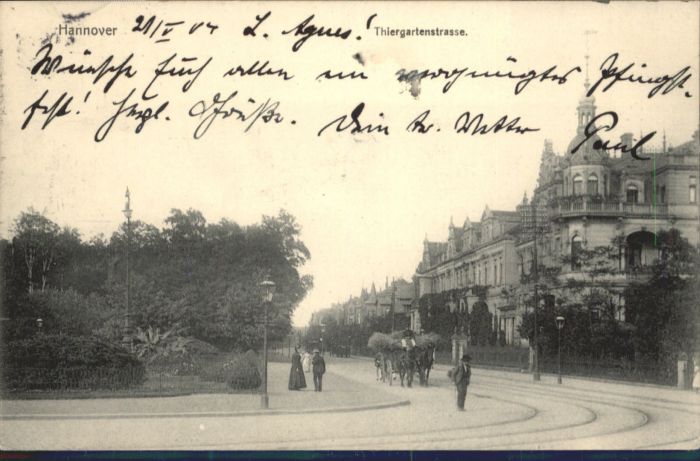 Hannover
21/V 04 L. Agnes!
Thiergartenstrasse.
Wünsche Euch allen ein vergnügtes Pfingst-
fest! Herzl. Grüße. Dein tr. Vetter Paul